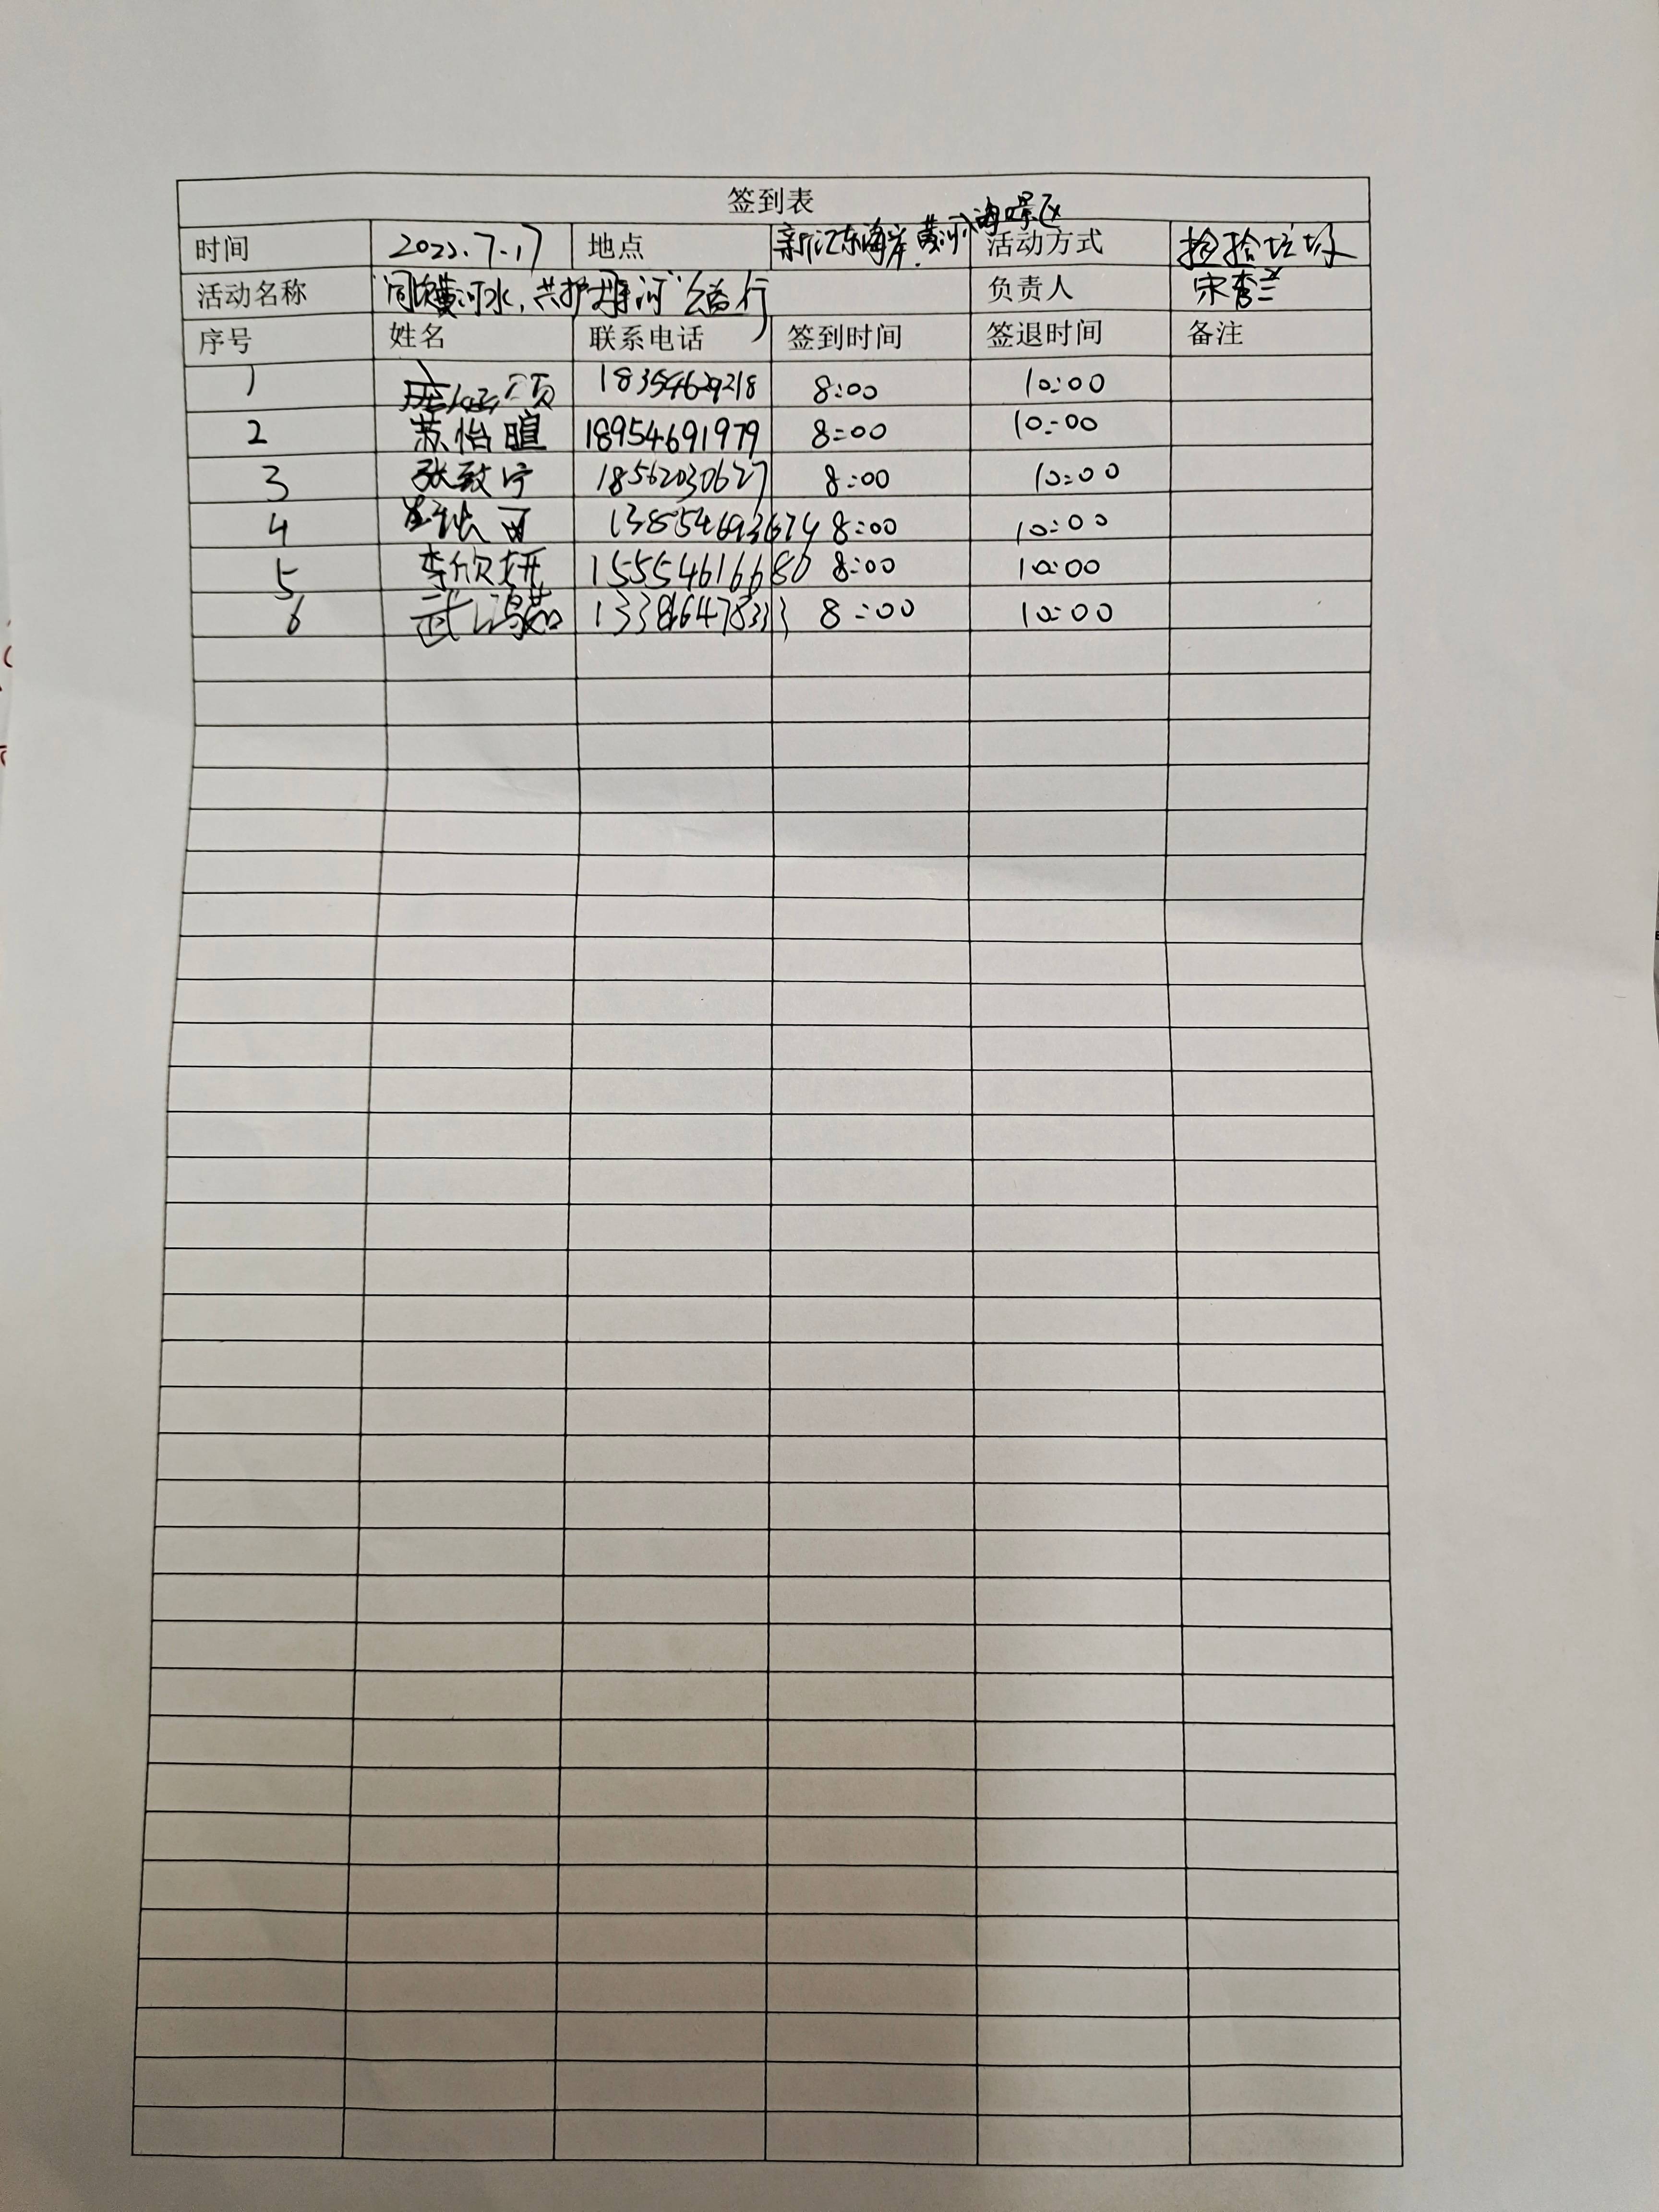 签到表
时间 2022.7.17 地点 新汇东海岸 黄河 区 活动方式 捡拾垃圾
活动名称 "同饮黄河水,共护母亲河"公益行 负责人 宋秀兰
序号 姓名 联系电话 签到时间 签退时间 备注
1 18354629218 8:00 10:00
2 苏怡暄 18954691979 8:00 10:00
3 张致宁 18562030627 8:00 10:00
4 13854693674 8:00 10:00
5 李欣妍 15554616680 8:00 10:00
6 武鸿茹 8:00 10:00